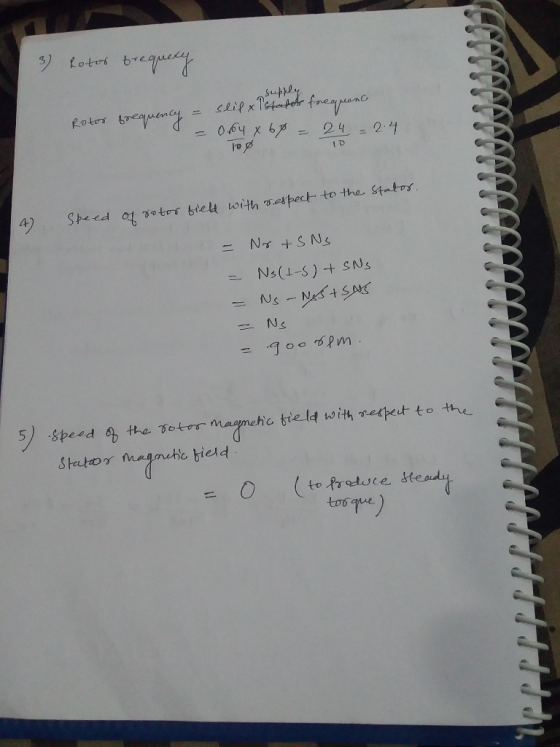 3) Rotor frequency
Rotor frequency = slip × supply frequenc
= 0.04/100 × 60 = 24/10 = 2.4
4) Speed of rotor field with respect to the stator.
= Nr + SNs
= Ns(1-S) + SNs
= Ns - NsS + SNs
= Ns
= 900 rpm.
5) Speed of the rotor magnetic field with respect to the
stator magnetic field.
= 0 (to produce steady
torque)